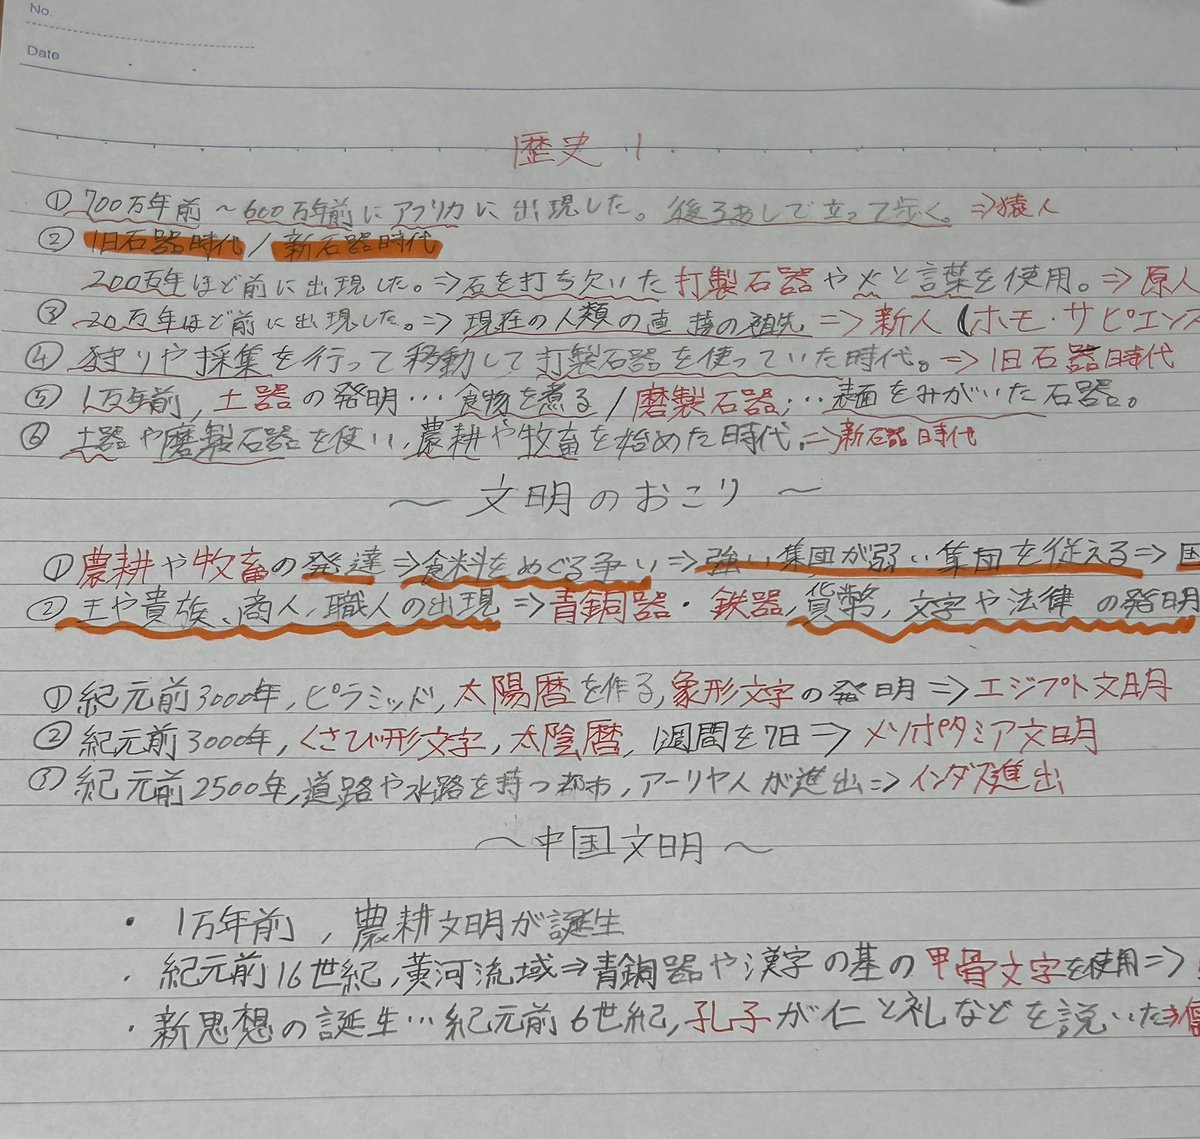 No.
Date
歴史 1
① 700万年前～600万年前にアフリカに出現した。後ろあしで立って歩く。⇒猿人
② 旧石器時代 / 新石器時代
200万年ほど前に出現した。⇒石を打ち欠いた打製石器や火と言葉を使用。⇒原人
③ 20万年ほど前に出現した。⇒現在の人類の直接の祖先 ⇒新人(ホモ・サピエンス
④ 狩りや採集を行って移動して打製石器を使っていた時代。⇒旧石器時代
⑤ 1万年前,土器の発明…食物を煮る / 磨製石器;…表面をみがいた石器。
⑥ 土器や磨製石器を使い,農耕や牧畜を始めた時代.⇒新石器時代
～文明のおこり～
① 農耕や牧畜の発達⇒食料をめぐる争い⇒強い集団が弱い集団を従える⇒国
② 王や貴族、商人,職人の出現⇒青銅器・鉄器,貨幣,文字や法律の発明
① 紀元前3000年,ピラミッド,太陽暦を作る,象形文字の発明⇒エジプト文明
② 紀元前3000年,くさび形文字,太陰暦,1週間を7日⇒メソポタミア文明
③ 紀元前2500年,道路や水路を持つ都市,アーリヤ人が進出⇒インダス進出
～中国文明～
・1万年前,農耕文明が誕生
・紀元前16世紀,黄河流域⇒青銅器や漢字の基の甲骨文字を使用⇒
・新思想の誕生…紀元前6世紀,孔子が仁と礼などを説いた⇒儒